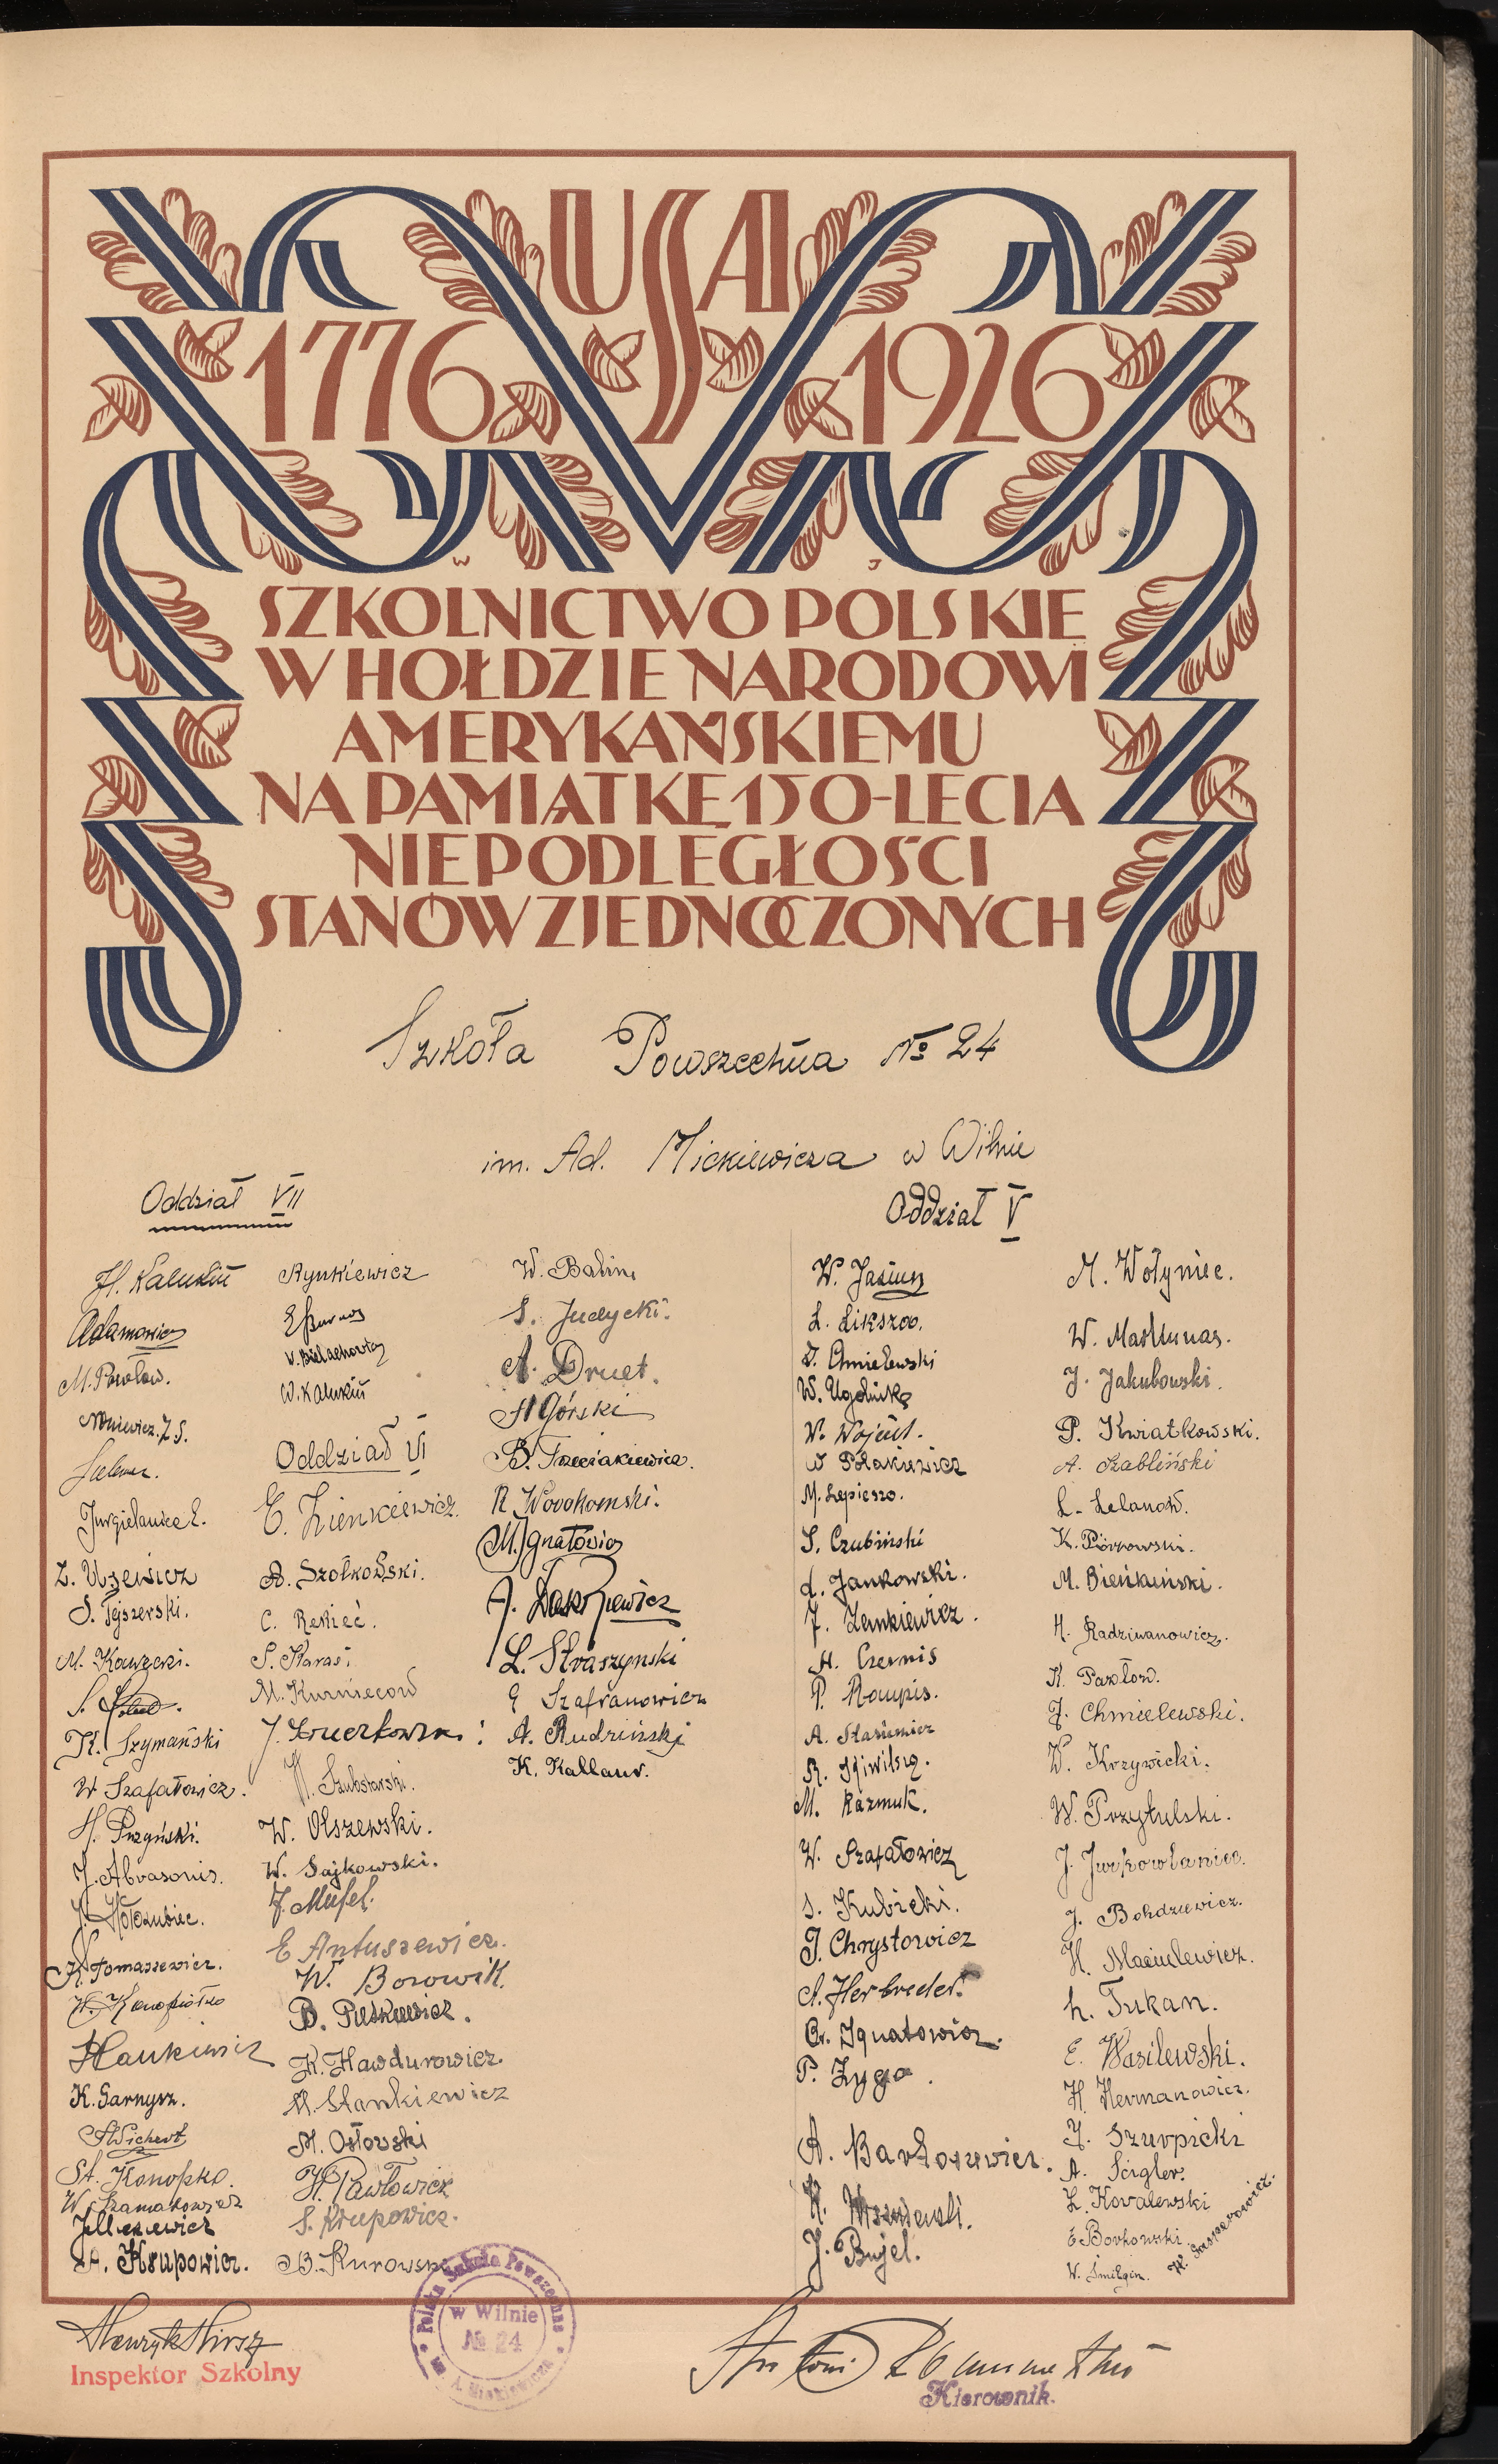 USA
1776 1926
W J
SZKOLNICTWO POLSKIE
W HOŁDZIE NARODOWI
AMERYKAŃSKIEMU
NA PAMIĄTKĘ 150-LECIA
NIEPODLEGŁOŚCI
STANÓW ZJEDNOCZONYCH
Szkoła Powszechna № 24
im. Ad. Mickiewicza w Wilnie
Oddział VII
H. Kalukin
Adamowicz
M. Pawłow.
L. Uzewicz
S. Tejszerski.
M. Kawzecki.
K. Szymański
W Szafałowicz.
H. Puzyński.
J. Abrasonis.
J. Hołoubiec.
K. Tomaszewicz.
W. Konopiołko
Hankiewicz
K. Garnysz.
A. Wichert
St. Konopko.
W. Szamakowicz
A. Krupowicz.
Rynkiewicz
W. Bielachowicz
W. Kalukin
Oddział VI
E. Zienkiewicz.
A. Szołkowski.
C. Rekieć.
S. Karasi
M. Kurniecow
W. Olszewski.
W. Sajkowski.
J. Mufel.
E Antuszewicz.
W. Borowik.
B. Pieskiewicz.
K. Hawdurowicz.
M. Stankiewicz
M. Osłowski
H. Pawłowicz
S. Krupowicz.
B. Kurowski
W. Balin
S. Judycki.
A. Druet.
H Górski
B. Trzeciakiewicz.
R Nowokomski.
M. Ignatowicz
L. Straszynski
E Szafranowicz
A. Rudziński
K. Kallaur.
Oddział V
W. Jasiun
L. Likszo.
J. Chmielewski
W. Ugolnik
W. Wojcut.
W Połakiewicz
M. Łepieszo.
S. Czubiński
A. Jankowski.
J. Zenkiewicz.
H. Czernis
P. Raupis.
A. Stasiewicz
M. Razmuk.
W. Szafałowicz
S. Kubicki.
J. Chrystowicz
A. Herbreder.
Cz. Ignatowicz.
P. Zyga.
A. Bartoszewicz.
J. Bujel.
M. Wołyniec.
W. Maslunas.
J. Jakubowski.
P. Kwiatkowski.
A. Szabliński
L. Lelanow.
K. Piórkowski.
M. Bieńkuński.
H. Radziwanowicz.
K. Pawłow.
J. Chmielewski.
W. Krzywicki.
W. Przytulski.
J. Jurkowlaniec.
J. Bohdziewicz.
H. Maciulewicz.
L. Tukan.
E. Wasilewski.
H. Hermanowicz.
J. Szurpicki
A. Szigler.
L. Kowalewski
E Borkowski
W. Śmilgin.
H. Gasperowicz.
Henryk Hirsz
Inspektor Szkolny
Polska Szkoła Powszechna
w Wilnie
№ 24
im. A. Mickiewicza
Kierownik.